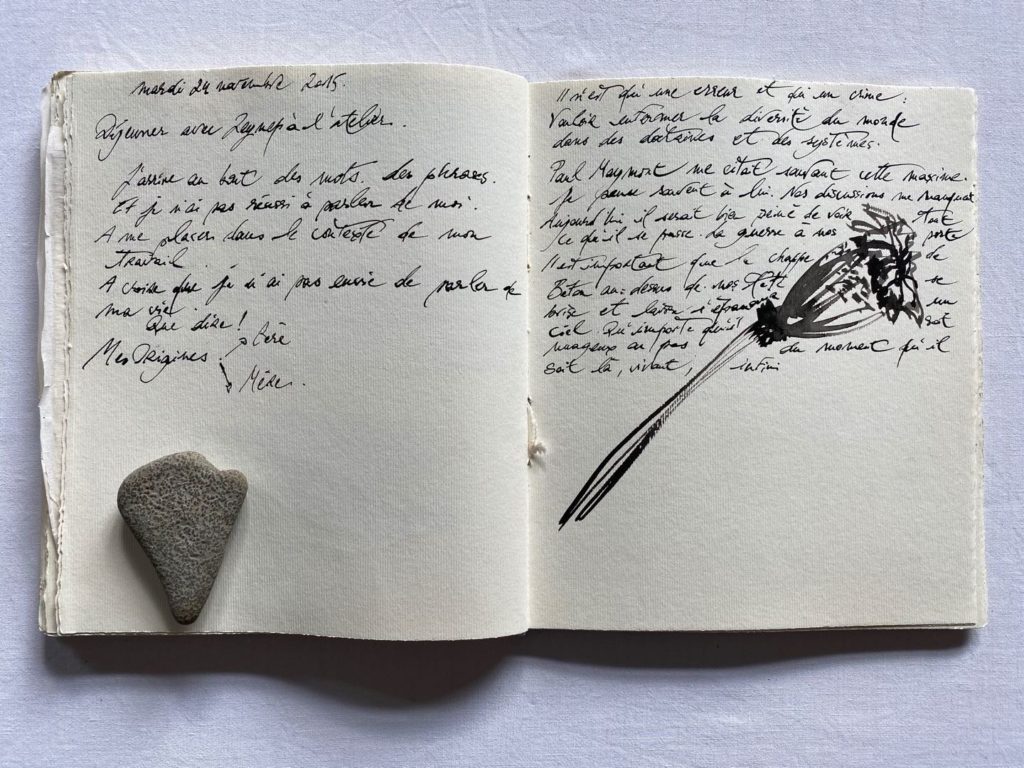 mardi 24 novembre 2015.
Déjeuner avec Zeynep à l'atelier.
J'arrive au bout des mots. des phrases.
Et je n'ai pas réussi à parler de moi.
A me placer dans le contexte de mon
travail.
A croire que je n'ai pas envie de parler de
ma vie.
Que dire !
Mes Origines. Père
Mère.
Il n'est qu'une erreur et qu'un crime :
Vouloir enfermer la diversité du monde
dans des doctrines et des systèmes.
Paul Maymont me citait souvent cette maxime.
Je pense souvent à lui. Nos discussions me manquent
Aujourd'hui il serait bien peiné de voir tout
ce qui se passe. La guerre à nos porte
Il est important que la chappe de
Béton au-dessus de nos tête se
brise et laisse s'épanouir un
ciel. Qu'importe qu'il soit
nuageux ou pas du moment qu'il
soit là, vivant, infini